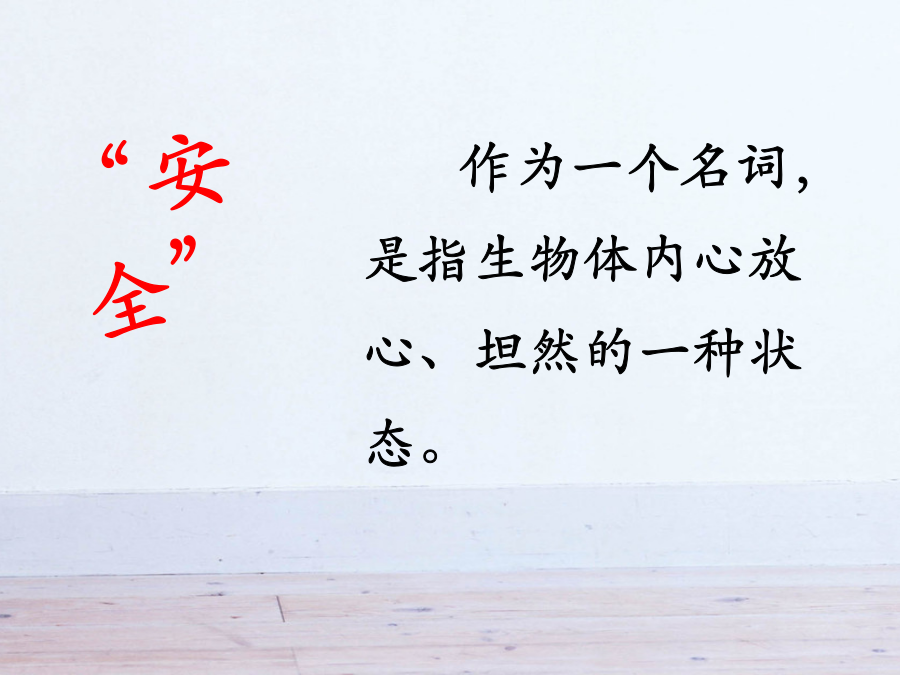 “安
全”
作为一个名词，
是指生物体内心放
心、坦然的一种状
态。